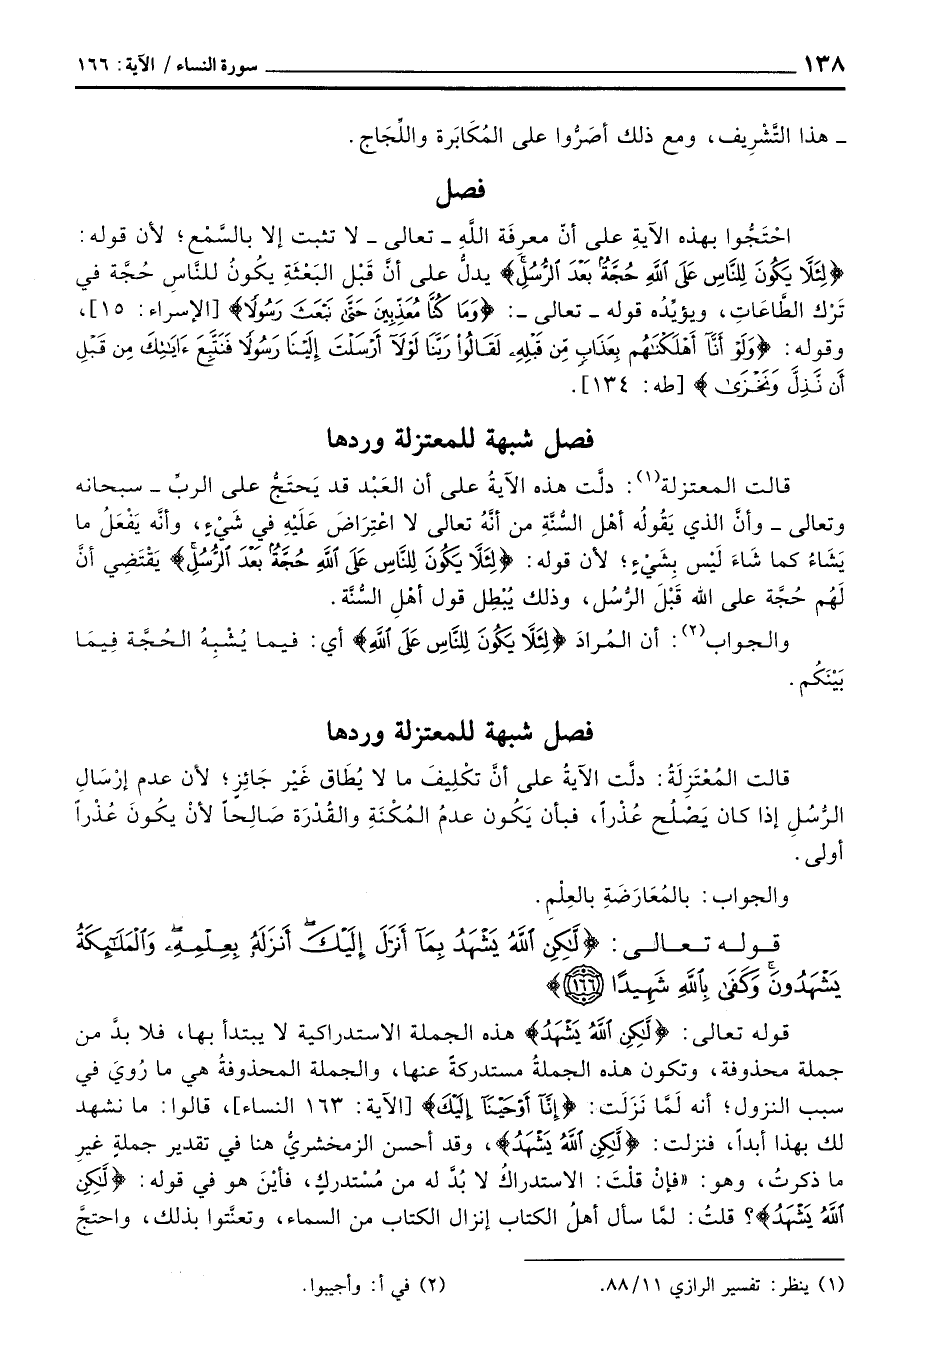 ١٣٨ ــــــــــ سورة النساء / الآية: ١٦٦
ـ هذا التَّشْرِيف، ومع ذلك أصَرُّوا على المُكَابَرة واللِّجَاج.
فصل
احْتَجُّوا بهذه الآيةِ على أنّ معرِفَة اللَّهِ ـ تعالى ـ لا تثبت إلا بالسَّمْع؛ لأن قوله:
﴿لِئَلَّا يَكُونَ لِلنَّاسِ عَلَى ٱللَّهِ حُجَّةُۢ بَعْدَ ٱلرُّسُلِۚ﴾ يدلُّ على أنَّ قَبْل البَعْثَةِ يكُونُ للنَّاسِ حُجَّة في
تَرْك الطَّاعَاتِ، ويؤيِّدُه قوله ـ تعالى ـ: ﴿وَمَا كُنَّا مُعَذِّبِينَ حَتَّىٰ نَبْعَثَ رَسُولًا﴾ [الإسراء: ١٥]،
وقوله: ﴿وَلَوْ أَنَّآ أَهْلَكْنَٰهُم بِعَذَابٍ مِّن قَبْلِهِۦ لَقَالُوا۟ رَبَّنَا لَوْلَآ أَرْسَلْتَ إِلَيْنَا رَسُولًا فَنَتَّبِعَ ءَايَٰتِكَ مِن قَبْلِ
أَن نَّذِلَّ وَنَخْزَىٰ﴾ [طه: ١٣٤].
فصل شبهة للمعتزلة وردها
قالت المعتزلة(١): دلَّت هذه الآيةُ على أن العَبْد قد يَحتَجُّ على الربِّ ـ سبحانه
وتعالى ـ وأنَّ الذي يَقُولُه أهْل السُّنَّةِ من أنَّهُ تعالى لا اعْتِرَاضَ عَلَيْهِ في شَيْءٍ، وأنَّه يَفْعَلُ ما
يَشَاءُ كما شَاءَ لَيْس بِشَيْءٍ؛ لأن قوله: ﴿لِئَلَّا يَكُونَ لِلنَّاسِ عَلَى ٱللَّهِ حُجَّةُۢ بَعْدَ ٱلرُّسُلِۚ﴾ يَقْتَضِي أنَّ
لَهُم حُجَّة على الله قَبْلَ الرُّسُل، وذلك يُبْطِل قول أهْلِ السُّنَّة.
والجواب(٢): أن المُرادَ ﴿لِئَلَّا يَكُونَ لِلنَّاسِ عَلَى ٱللَّهِ﴾ أي: فيما يُشْبِهُ الحُجَّة فِيمَا
بَيْنَكُم.
فصل شبهة للمعتزلة وردها
قالت المُعْتَزِلَةُ: دلَّت الآيةُ على أنَّ تكْلِيفَ ما لا يُطَاق غَيْر جَائِزٍ؛ لأن عدم إرْسَالِ
الرُّسُلِ إذا كان يَصْلُح عُذْراً، فبأن يَكُون عدمُ المُكْنَةِ والقُدْرَة صَالِحاً لأنْ يكُونَ عُذْراً
أولى.
والجواب: بالمُعَارَضَةِ بالعِلْمِ.
قوله تعالى: ﴿لَّٰكِنِ ٱللَّهُ يَشْهَدُ بِمَآ أَنزَلَ إِلَيْكَۖ أَنزَلَهُۥ بِعِلْمِهِۦۖ وَٱلْمَلَٰٓئِكَةُ
يَشْهَدُونَۚ وَكَفَىٰ بِٱللَّهِ شَهِيدًا ١٦٦﴾
قوله تعالى: ﴿لَّٰكِنِ ٱللَّهُ يَشْهَدُ﴾ هذه الجملة الاستدراكية لا يبتدأ بها، فلا بدَّ من
جملة محذوفة، وتكون هذه الجملةُ مستدركةً عنها، والجملة المحذوفةُ هي ما رُويَ في
سبب النزول؛ أنه لَمَّا نَزَلَت: ﴿إِنَّآ أَوْحَيْنَآ إِلَيْكَ﴾ [الآية: ١٦٣ النساء]، قالوا: ما نشهد
لك بهذا أبداً، فنزلت: ﴿لَّٰكِنِ ٱللَّهُ يَشْهَدُ﴾، وقد أحسن الزمخشريُّ هنا في تقدير جملةٍ غيرِ
ما ذكرتُ، وهو: «فإنْ قلْتَ: الاستدراكُ لا بُدَّ له من مُسْتدركٍ، فأيْنَ هو في قوله: ﴿لَّٰكِنِ
ٱللَّهُ يَشْهَدُ﴾؟ قلتُ: لمَّا سأل أهلُ الكتاب إنزال الكتاب من السماء، وتعنَّتوا بذلك، واحتجَّ
(١) ينظر: تفسير الرازي ١١/ ٨٨. (٢) في أ: وأجيبوا.